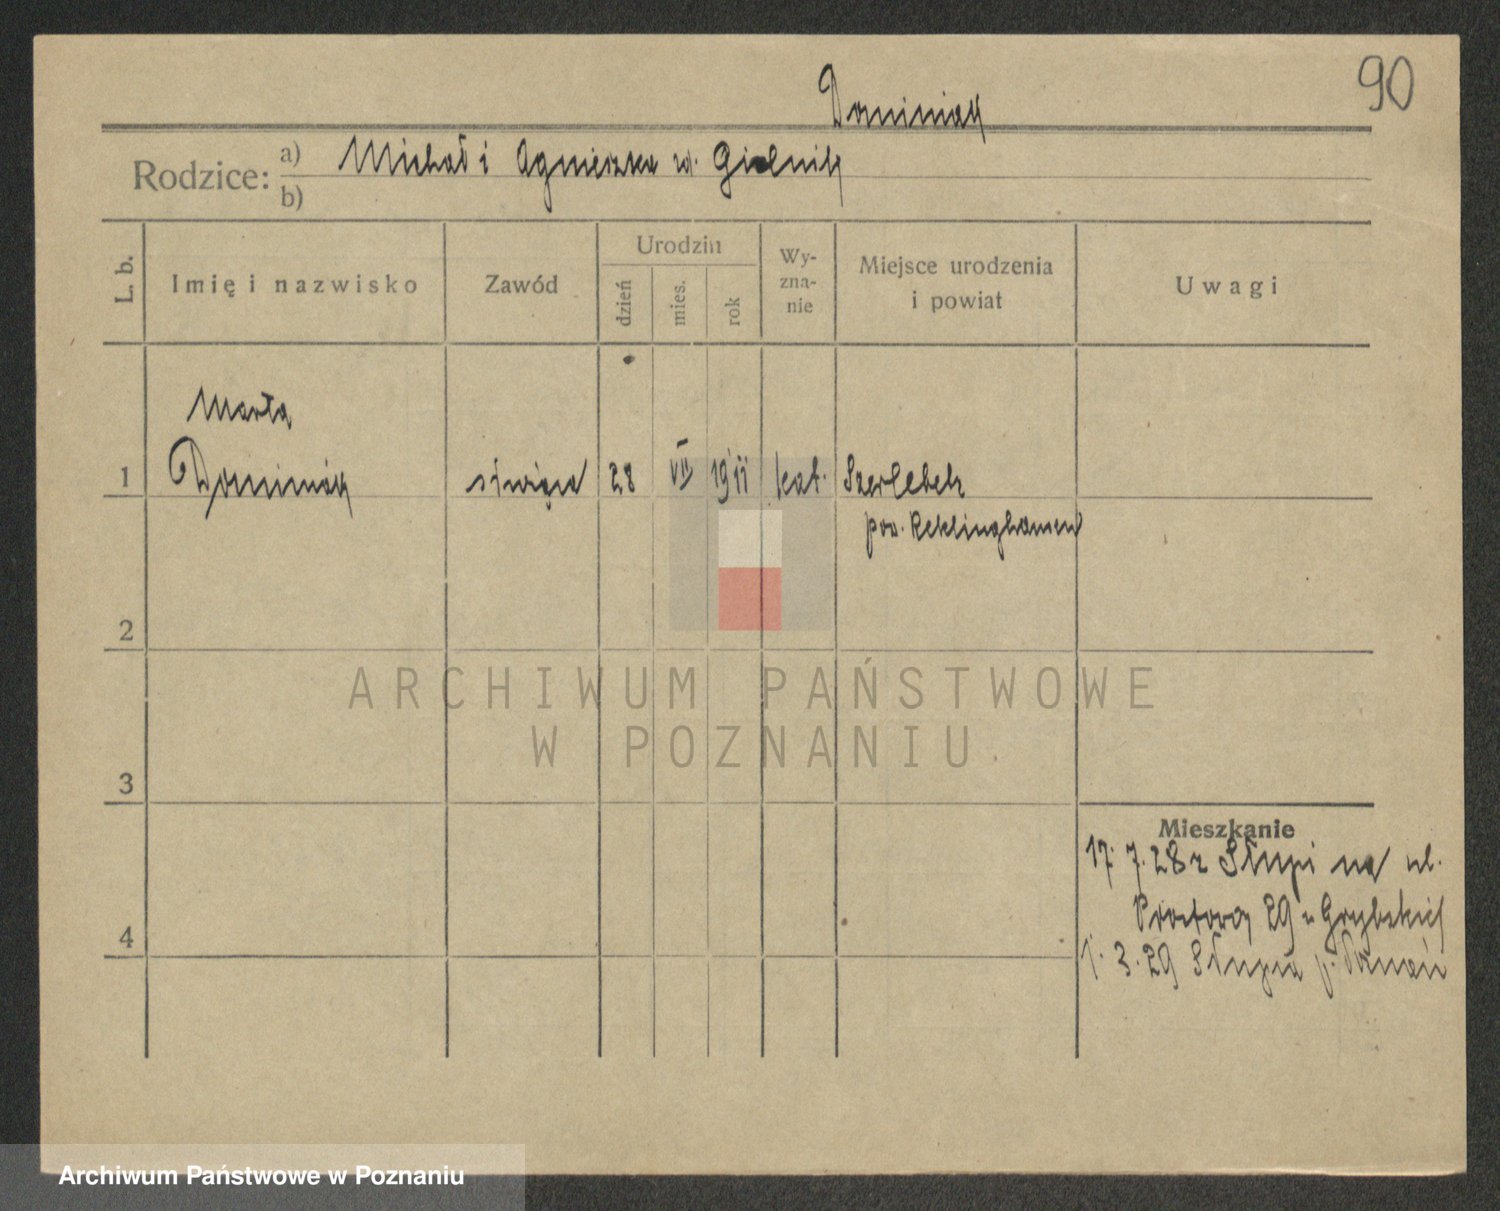 90
Dominiak
Rodzice: a) Michał i Agnieszka z d. Gielnik
b)
L. b.
Imię i nazwisko
Zawód
Urodzin
dzień
mies.
rok
Wy-
zna-
nie
Miejsce urodzenia
i powiat
Uwagi
Marta
1 Dominiak 28 VII 1911 kat. Szerlebek
pow. Reklinghausen
2
ARCHIWUM PAŃSTWOWE
W POZNANIU
3
Mieszkanie
17. 7. 28 z Słupi na ul.
29
4
1. 3. 29 Słupia p. Poznań
Archiwum Państwowe w Poznaniu